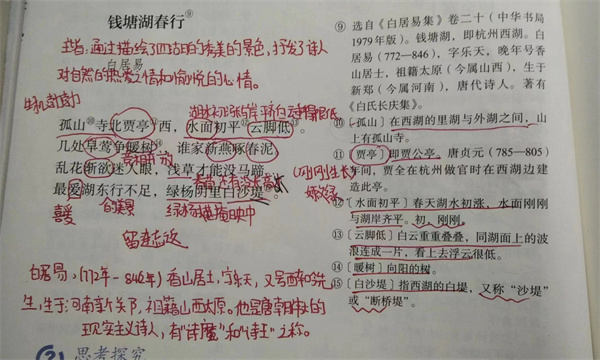 钱塘湖春行⑨
主旨:通过描绘了西湖的优美的景色,抒发了诗人
对自然的热爱之情和愉悦的心情。
白居易
生机勃勃
孤山⑩寺北贾亭⑪西,水面初平⑫云脚低⑬。
几处早莺争暖树⑭,谁家新燕啄春泥。
乱花渐欲迷人眼,浅草才能没马蹄。
最爱湖东行不足,绿杨阴里白沙堤⑮。
喜爱
的美景
绿杨
掩映中
留连忘返
白居易,(772年—846年)香山居士,字乐天,
生,生于:河南新郑,祖籍山西太原。他是唐朝
现实主义诗人,有“诗魔”和“诗王”之称。
思考探究
⑨ 选自《白居易集》卷二十(中华书局
1979年版)。钱塘湖,即杭州西湖。白
居易(772—846),字乐天,晚年号香
山居士,祖籍太原(今属山西),生于
新郑(今属河南),唐代诗人。著有
《白氏长庆集》。
〔孤山〕在西湖的里湖与外湖之间,山
上有孤山寺。
⑪〔贾亭〕即贾公亭。唐贞元(785—805)
年间,贾全在杭州做官时在西湖边建
造此亭。
⑫〔水面初平〕春天湖水初涨,水面刚刚
与湖岸齐平。初,刚刚。
⑬〔云脚低〕白云重重叠叠,同湖面上的波
浪连成一片,看上去浮云很低。
⑭〔暖树〕向阳的树。
⑮〔白沙堤〕指西湖的白堤,又称“沙堤”
或“断桥堤”。